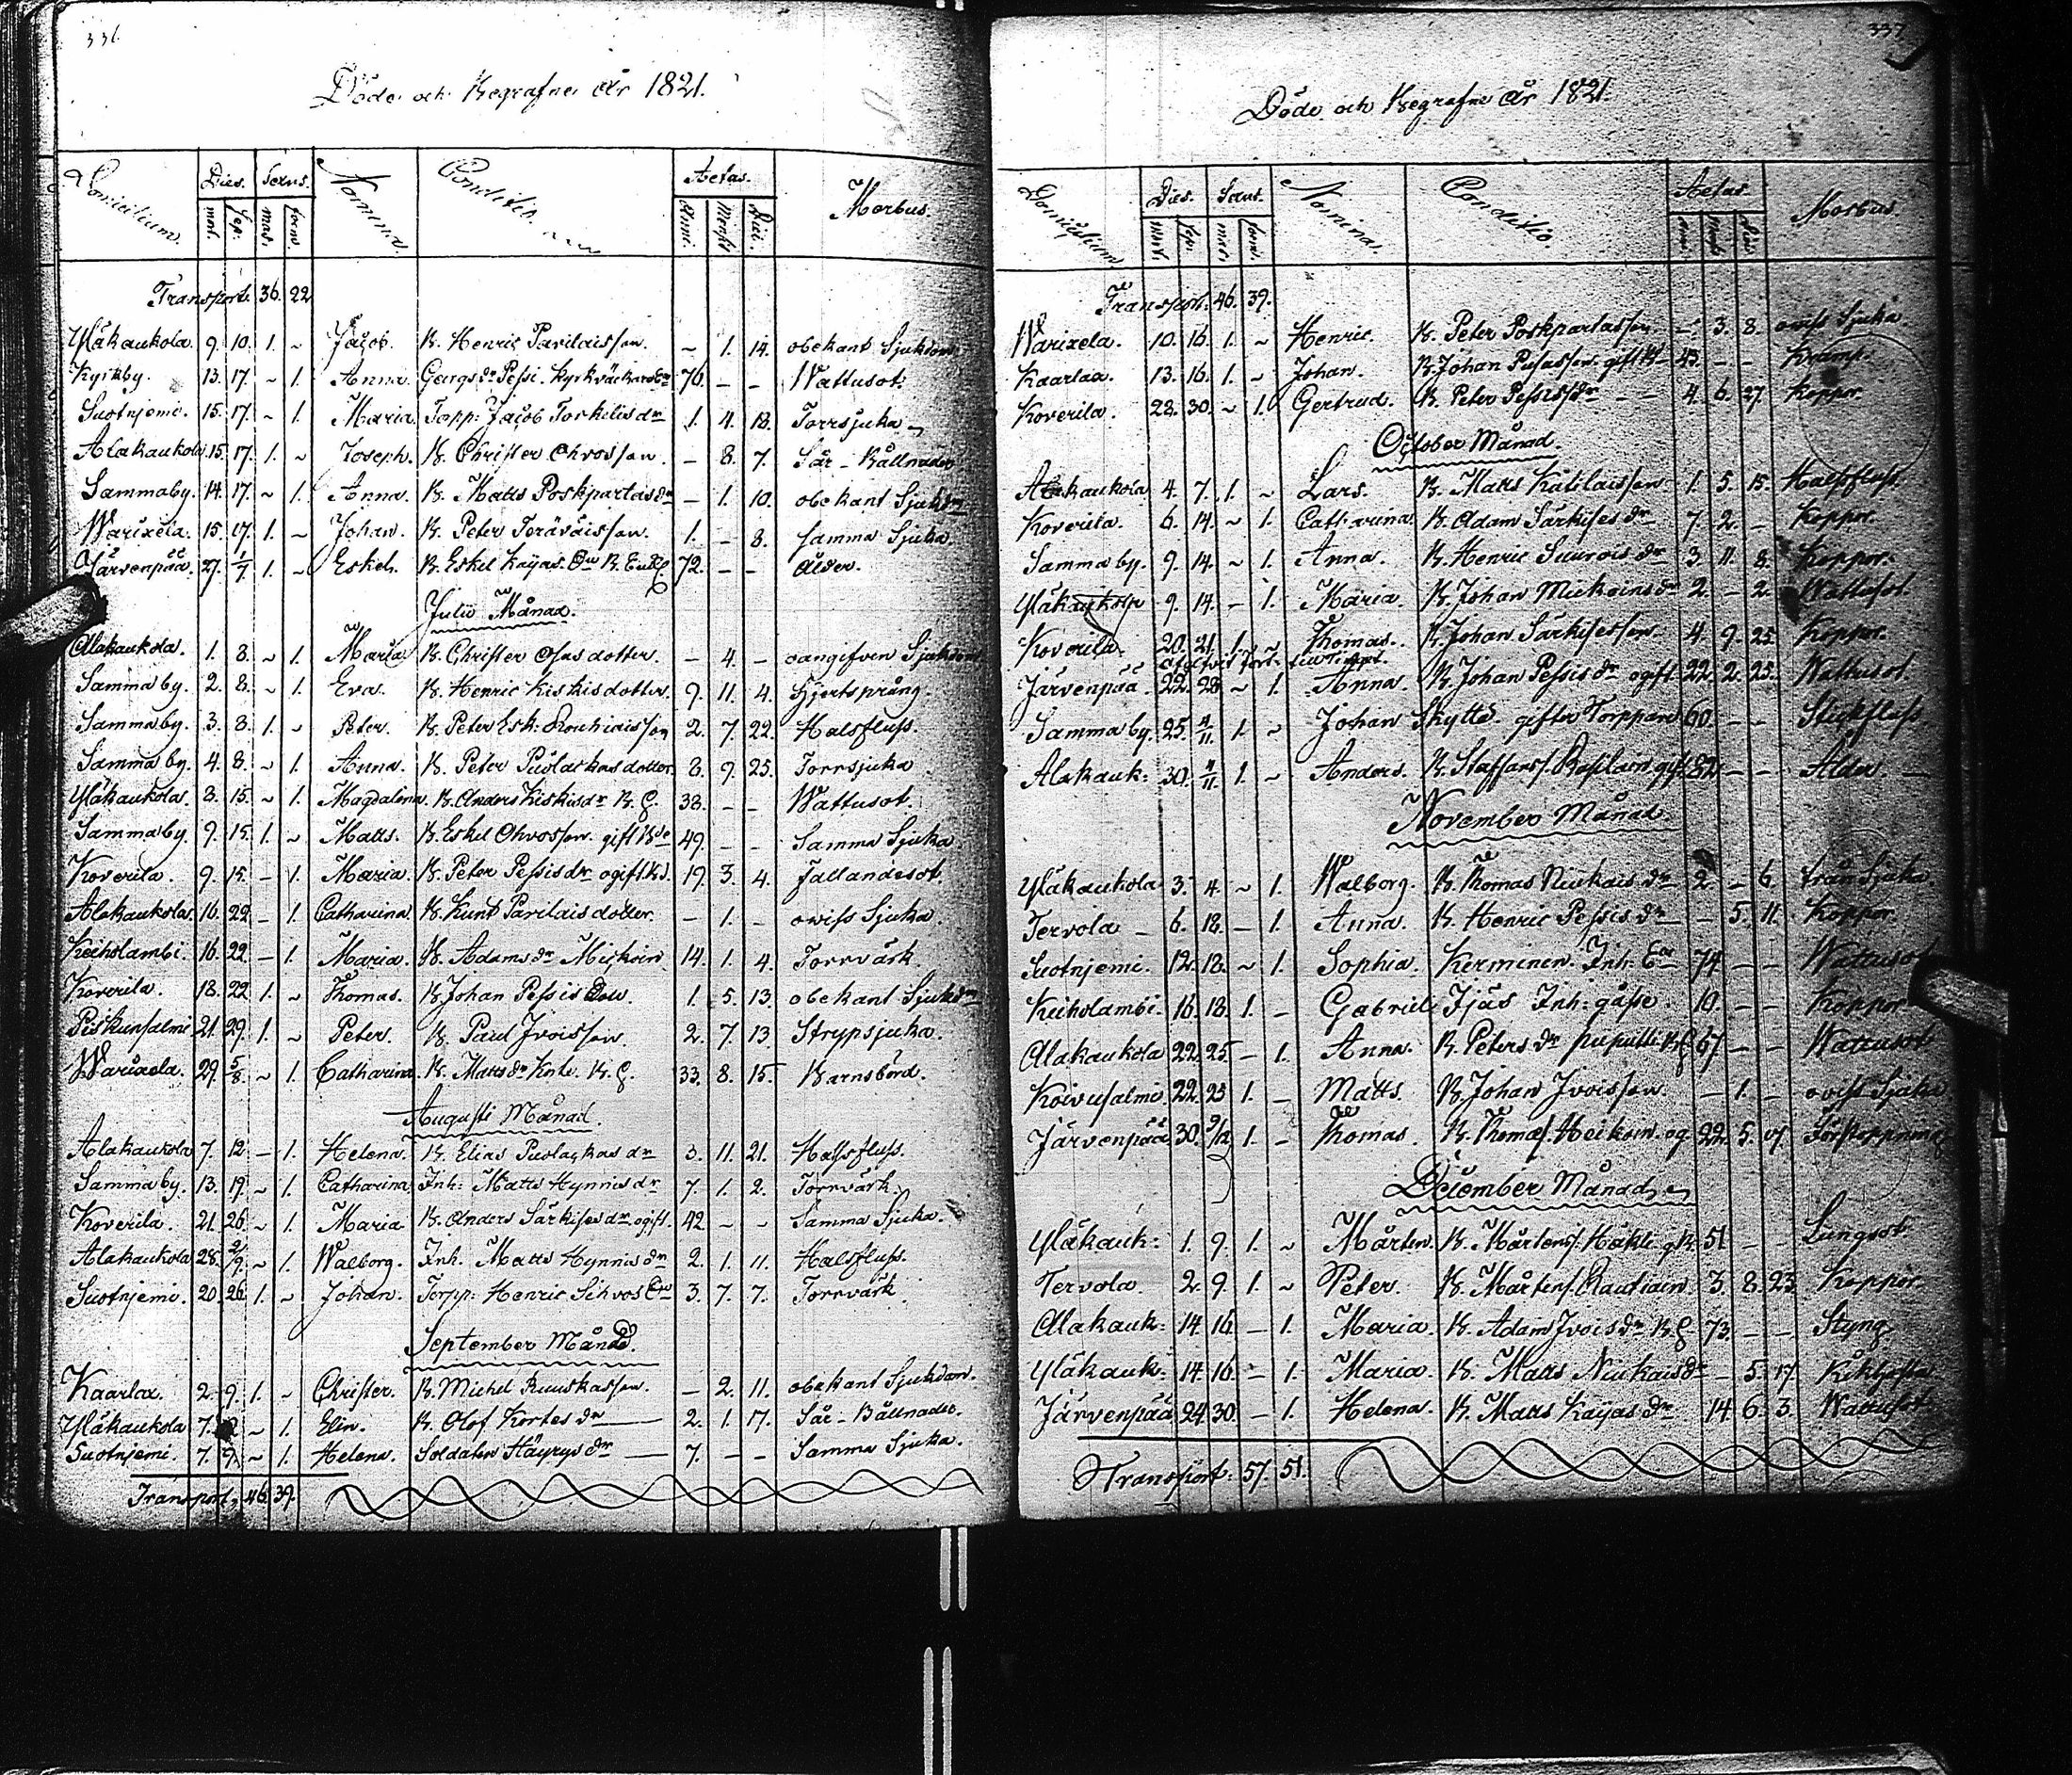 336.
Döde och Begrafne År 1821.
Domicilium. Dies. Sexus. Nomina. Conditio. Aetas. Morbus.
mort. sep. mas. fœm. Anni. Mens. Dies.
Transport. 36. 22
Yläkaukola. 9. 10. 1. ~ Jacob. B. Henric Parilaisson. ~ 1. 14. obekant Sjukdom
Kyrkby. 13. 17. ~ 1. Anna. Georgsdr Pessi. Kyrkväckare 76. – – Wattusot.
Suotnjemi. 15. 17. ~ 1. Maria. Torpp: Jacob Torkilisdr 1. 4. 18. Torrsjuka
Alakaukola. 15. 17. 1. ~ Joseph. B. Christer Ohvosson. – 8. 7. Sår-Bållnader
Sammaby. 14. 17. ~ 1. Anna. B. Matts Poskpartasdr – 1. 10. obekant Sjukdm
Warixela. 15. 17. 1. ~ Johan. B. Peter Teräväisson. 1. – 8. samma Sjuka.
Järvenpää. 27. 1/7. 1. ~ Eskel. B. Eskel Kayas. 72. – – Ålder.
Julii Månad.
Alakaukola. 1. 8. ~ 1. Maria B. Christer Ohsas dotter. – 4. – oangifven Sjukdom
Samma by. 2. 8. ~ 1. Eva. B. Henric Kiskis dotter. 9. 11. 4. Hjertsprång.
Samma by. 3. 8. 1. ~ Peter. B. Peter Esk: Rouhiaisson 2. 7. 22. Halsfluss.
Samma by. 4. 8. ~ 1. Anna. B. Peter Puolackas dotter. 8. 9. 25. Torrsjuka
Yläkaukola. 8. 15. ~ 1. Magdalena. B. Anders Kiskisdr B. E. 38. – – Wattusot
Samma by. 9. 15. 1. ~ Matts. B. Eskel Ohvosson. gift Bde 49. – – Samma Sjuka
Koverila. 9. 15. – 1. Maria. B. Peter Pessisdr ogift. 19. 3. 4. Fallandesot.
Alakaukola. 16. 22. – 1. Catharina. B. Knut Parilais dotter. – 1. – owiss Sjuka
Keiholambi. 16. 22. – 1. Maria. B. Adamsdr Mickoin. 14. 1. 4. Torrvärk.
Koverila. 18. 22. 1. ~ Thomas. B. Johan Pessis Son. 1. 5. 13. obekant Sjukdm
Piskunsalmi 21. 29. 1. ~ Peter. B. Paul Ivoisson. 2. 7. 13. Strypsjuka.
Warixela. 29. 5/8. ~ 1. Catharina. B. Mattsdr B. E. 33. 8. 15. Barnsbörd.
Augusti Månad.
Alakaukola 7. 12 – 1. Helena. B. Elias Puolackas dr 3. 11. 21. Halsfluss.
Samma by. 13. 19. ~ 1. Catharina. Inh: Matts Hynnisdr 7. 1. 2. Torrvärk.
Koverila. 21. 26. ~ 1. Maria B. Anders Särkisesdr ogift. 42. – – Samma Sjuka.
Alakaukola 28. 2/9. ~ 1. Walborg. Inh. Matts Hynnisdr 2. 1. 11. Halsfluss.
Suotnjemi. 20. 26. 1. ~ Johan. Torpp: Henric Sihvos 3. 7. 7. Torrvärk.
September Månad.
Kaarlax. 2. 9. 1. ~ Christer. B. Michel Ruuskasson. – 2. 11. obekant Sjukdom.
Yläkaukola 7. ~ 1. Elin. B. Olof Kortesdr 2. 1. 17. Sår-Bållnader
Suotnjemi. 7. 9. ~ 1. Helena. Soldaten Häyrysdr 7. – – Samma Sjuka.
Transport. 46. 39.
337
Döde och Begrafne År 1821.
Domicilium. Dies. Sexus. Nomina. Conditio. Aetas. Morbus.
mort. sep. mas. fœm. Anni. Mens. Dies.
Transport. 46. 39.
Warixela. 10. 16. 1. ~ Henric. B. Peter Poskpartasson – 3. 8. owiss Sjuka.
Kaarlax. 13. 16. 1. ~ Johan. B. Johan Pusasson. gift 43. – – Kramp.
Koverila. 28. 30. ~ 1. Gertrud. B. Peter Pessisdr 4. 6. 27. Koppor.
October Månad.
Alakaukola 4. 7. 1. ~ Lars. B. Matts Kätilaisson 1. 5. 15. Halsfluss.
Koverila. 6. 14. ~ 1. Catharina. B. Adam Särkises dr 7. 2. – Koppor.
Samma by. 9. 14. ~ 1. Anna. B. Henric Suurois dr 3. 11. 8. Koppor.
Yläkaukola 9. 14. – 1. Maria. B. Johan Mickoinsdr 2. – 2. Wattusot.
Koverila. 20. 21. 1. ~ Thomas. B. Johan Särkisesson. 4. 9. 25. Koppor.
Järvenpää. 22. 28. ~ 1. Anna. B. Johan Pessis dr ogift 22. 2. 25. Wattusot.
Samma by. 25. 4/11. 1. ~ Johan Skytte. gifter Torppare 60. – – Stickfluss.
Alakauk: 30. 4/11. 1. ~ Anders. B. Staffanss. gift 82. – – Ålder
November Månad.
Yläkaukola 3. 4. ~ 1. Walborg. B. Thomas Niukais dr 2. – 6. Sjuka.
Tervola – 6. 18. – 1. Anna. B. Henric Pessis dr – 5. 11. Koppor.
Suotnjemi. 12. 18. ~ 1. Sophia. Kerminen. Inh: Ea 74. – – Wattusot
Keiholambi. 16. 18. 1. – Gabriel Ijäs Inh: gåsse. 10. – – Koppor
Alakaukola 22. 25. – 1. Anna. B. Peters dr Puputti B. E. 67. – – Wattusot
Koivusalmi. 22. 25 1. – Matts. B. Johan Ivoisson. – 1. – owiss Sjuka
Järvenpää 30. 9/12. 1. – Thomas. B. Thomass. Heikoin. og. 22. 5. 17. Förstoppning
December Månad
Yläkauk: 1. 9. 1. ~ Mårten. B. Mårtens. Häkli. 51. – – Lungsot.
Tervola. 2. 9. 1. ~ Peter. B. Mårtens. Rautiain. 3. 8. 23. Koppor.
Alakauk: 14. 16. – 1. Maria. B. Adam Ivoisdr B. E. 73. – – Styng
Yläkauk: 14. 16. – 1. Maria. B. Matts Niukaisdr – 5. 17. Kikhosta
Järvenpää 24. 30. – 1. Helena. B. Matts Kayas dr 14. 6. 3. Wattusot.
Transport. 57. 51.